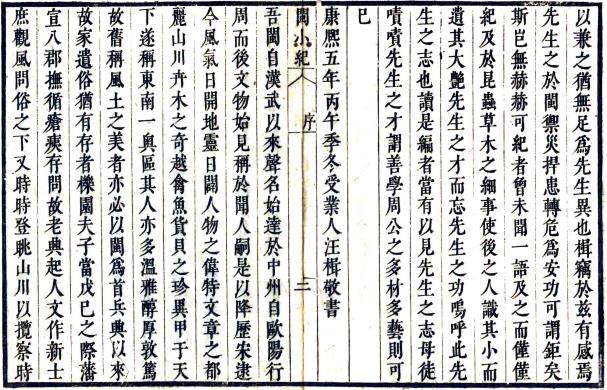 以兼之猶無足爲先生異也楫竊於兹有感焉
先生之於閩禦災捍患轉危爲安功可謂鉅矣
斯豈無赫赫可紀者曾未聞一語及之而僅僅
紀及於昆蟲草木之細事使後之人識其小而
遺其大艷先生之才而忘先生之功嗚呼此先
生之志也讀是編者當有以見先生之志毋徒
嘖嘖先生之才謂善學周公之多材多藝則可
已
康熙五年丙午季冬受業人汪楫敬書
閩小紀
序
二
吾閩自漢武以來聲名始達於中州自歐陽行
周而後文物始見稱於聞人嗣是以降歷宋逮
今風氣日開地靈日闢人物之偉特文章之都
麗山川卉木之奇越禽魚貨貝之珍異甲于天
下遂稱東南一奧區其人亦多溫雅醇厚敦篤
故舊稱風土之美者亦必以閩爲首兵興以來
故家遺俗猶有存者櫟園夫子當戊巳之際藩
宣八郡撫循瘡痍存問故老興起人文作新士
庶觀風問俗之下又時時登眺山川以攬察時